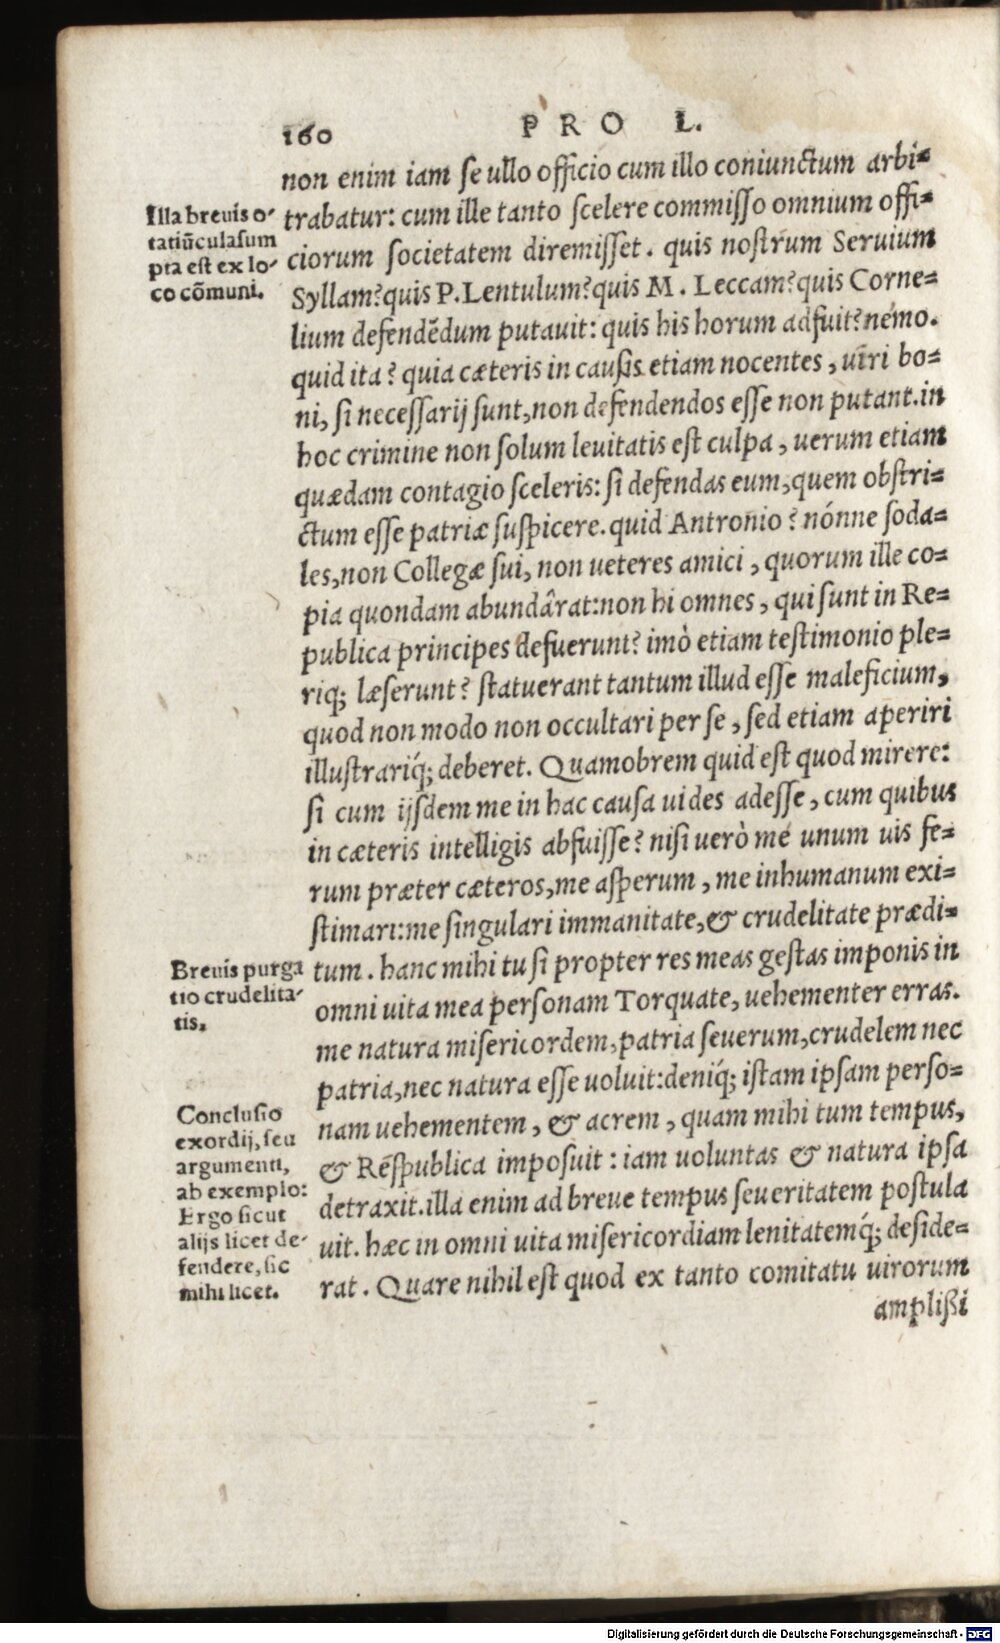 160 PRO L.
non enim iam se ullo officio cum illo coniunctum arbi=
trabatur: cum ille tanto scelere commisso omnium offi=
ciorum societatem diremisset. quis nostrum Seruium
Syllam? quis P. Lentulum? quis M. Leccam? quis Corne=
lium defendẽdum putauit: quis his horum adfuit? némo.
quid ita? quia cæteris in causis etiam nocentes, uiri bo=
ni, si necessarij sunt, non defendendos esse non putant. in
hoc crimine non solum leuitatis est culpa, uerum etiam
quædam contagio sceleris: si defendas eum, quem obstri=
ctum esse patriæ suspicere. quid Antronio? nónne soda=
les, non Collegæ sui, non ueteres amici, quorum ille co=
pia quondam abundârat: non hi omnes, qui sunt in Re=
publica principes defuerunt? imò etiam testimonio ple=
riq; læserunt? statuerant tantum illud esse maleficium,
quod non modo non occultari per se, sed etiam aperiri
illustrariq́; deberet. Quamobrem quid est quod mirere:
si cum ijsdem me in hac causa uides adesse, cum quibus
in cæteris intelligis abfuisse? nisi uerò me unum uis fe=
rum præter cæteros, me asperum, me inhumanum exi=
stimari: me singulari immanitate, & crudelitate prædi=
tum. hanc mihi tu si propter res meas gestas imponis in
omni uita mea personam Torquate, uehementer erras.
me natura misericordem, patria seuerum, crudelem nec
patria, nec natura esse uoluit: deniq́; istam ipsam perso=
nam uehementem, & acrem, quam mihi tum tempus,
& Rẽspublica imposuit: iam uoluntas & natura ipsa
detraxit. illa enim ad breue tempus seueritatem postula
uit. hæc in omni uita misericordiam lenitatemq́; deside=
rat. Quare nihil est quod ex tanto comitatu uirorum
amplißi
Illa breuis o-
tatiũcula sum
pta est ex lo-
co cõmuni.
Breuis purga
tio crudelita-
tis.
Conclusio
exordij, seu
argumenti,
ab exemplo:
Ergo sicut
alijs licet de-
fendere, sic
mihi licet.
Digitalisierung gefördert durch die Deutsche Forschungsgemeinschaft - DFG